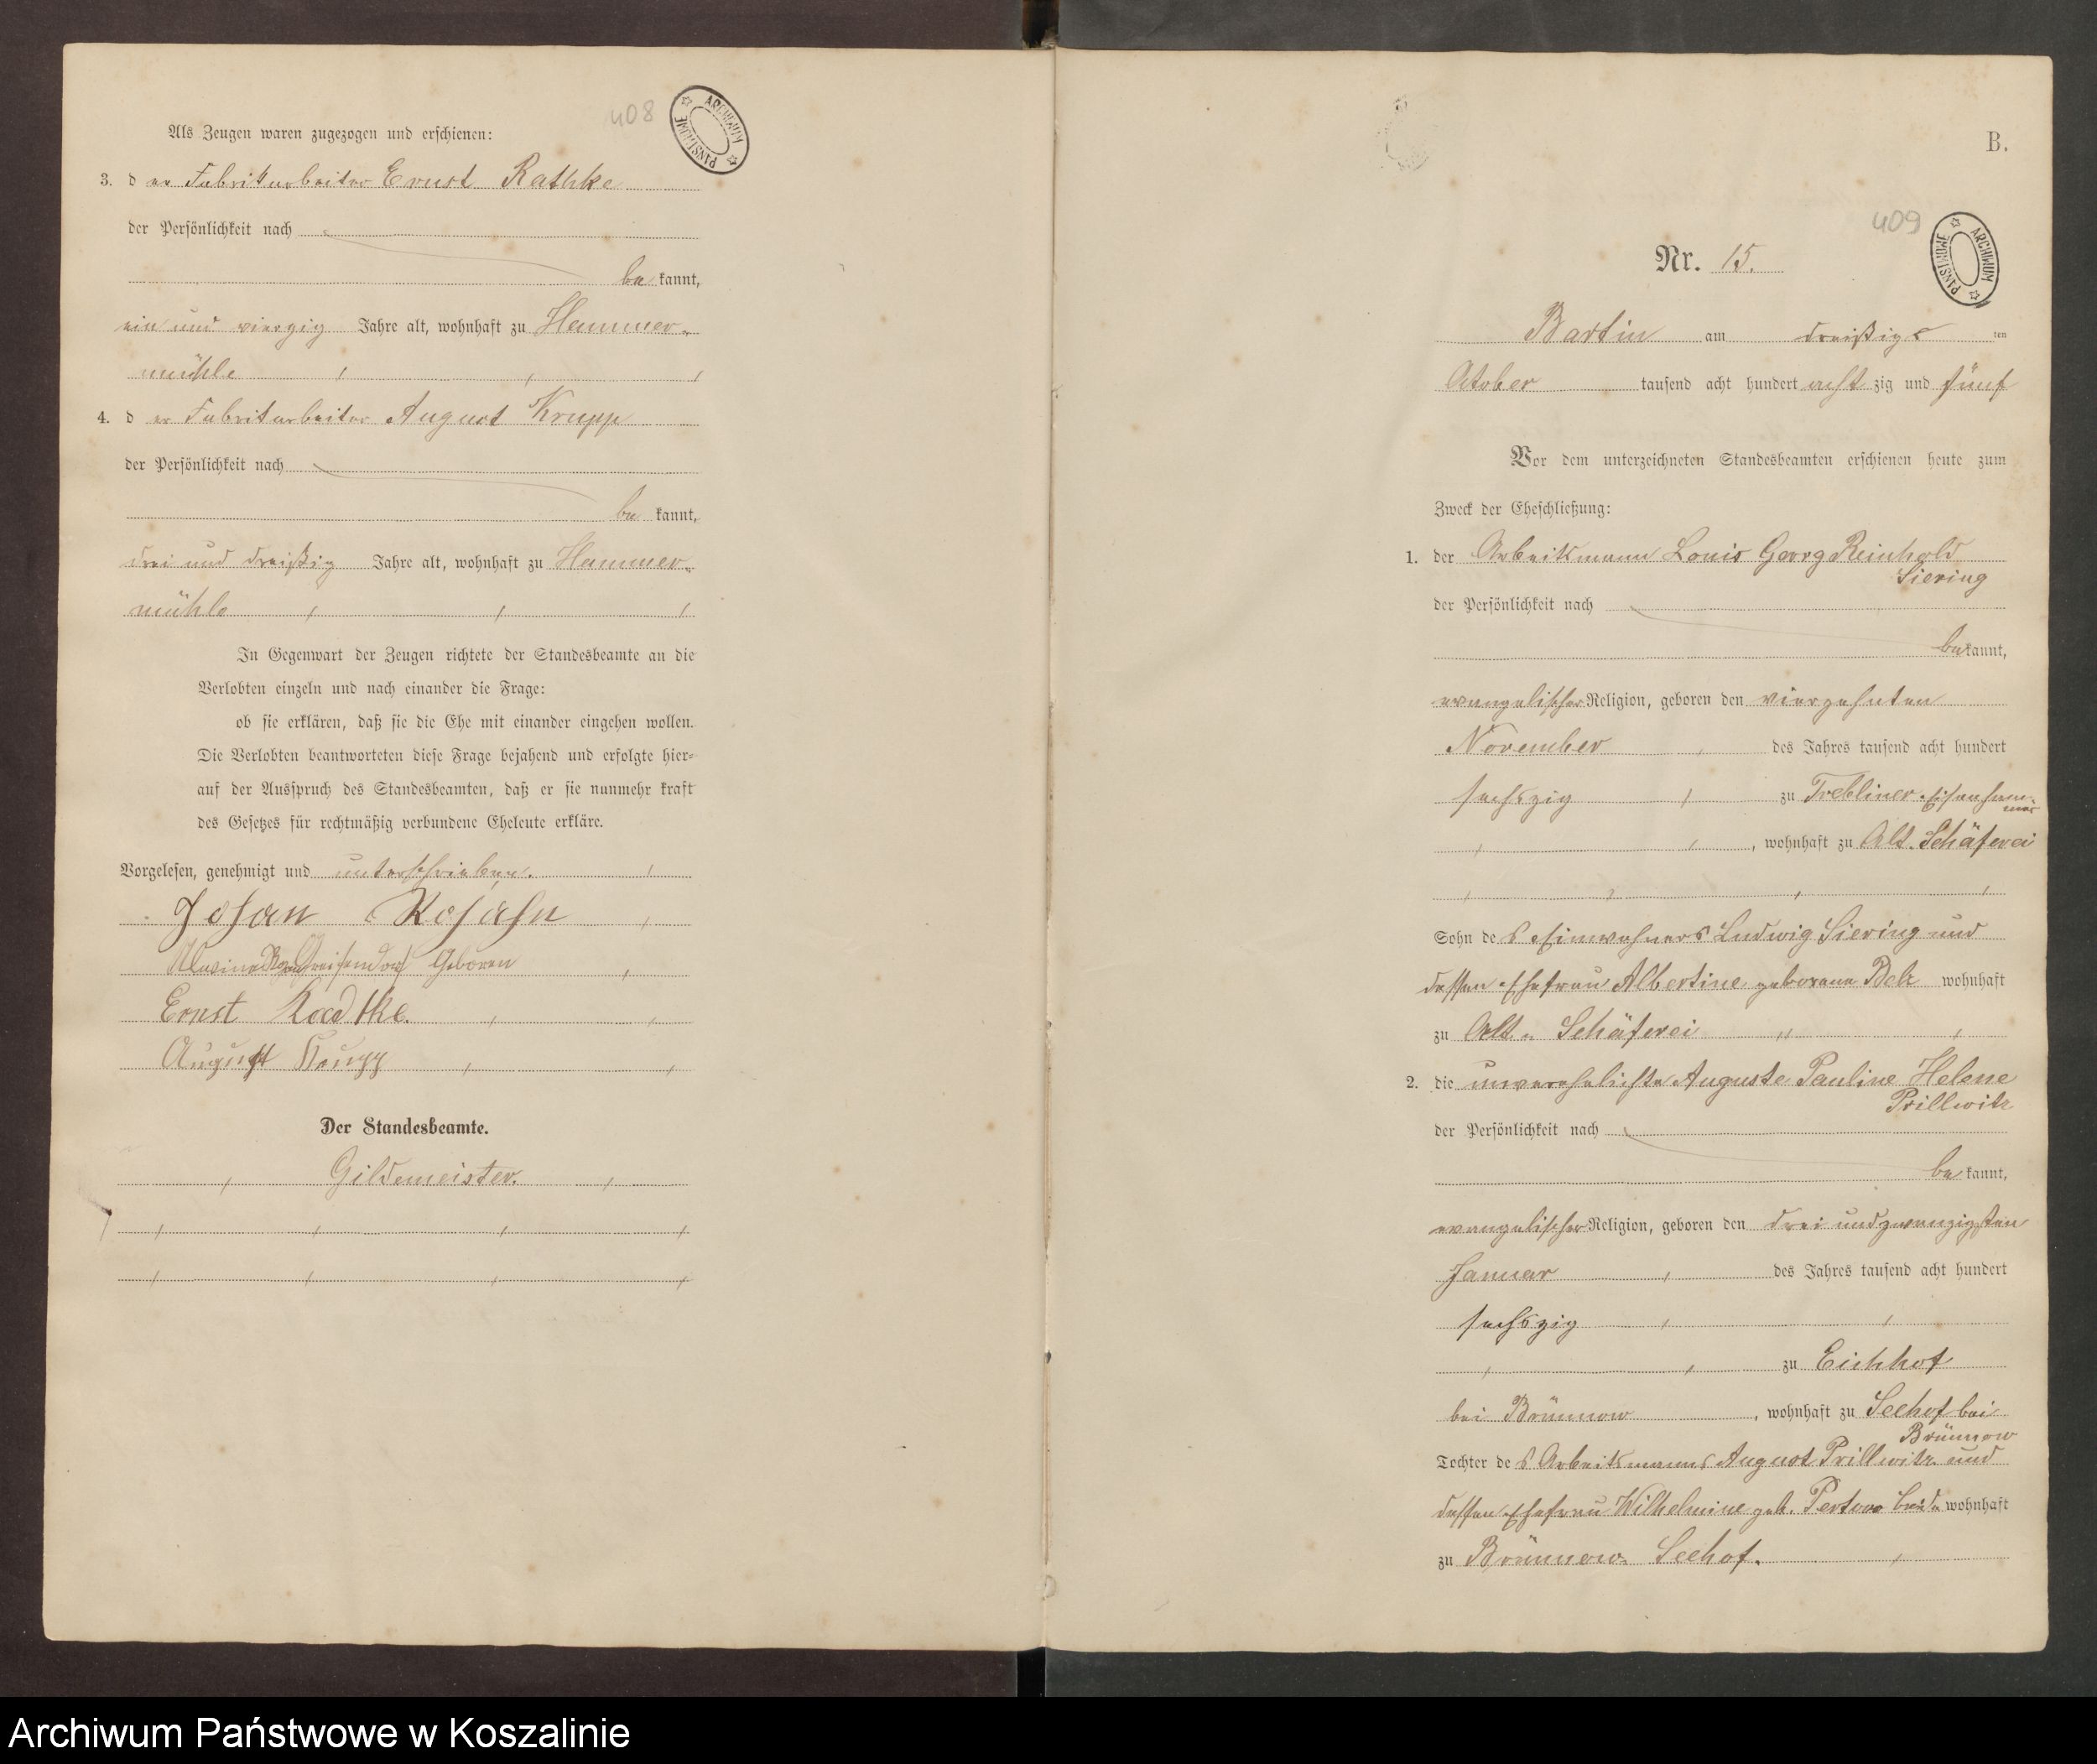 408
ARCHIWUM PAŃSTWOWE
Als Zeugen waren zugezogen und erschienen:
3. d er Fabrikarbeiter Ernst Rathke
der Persönlichkeit nach
be kannt,
ein und vierzig Jahre alt, wohnhaft zu Hammer-
mühle
4. d er Fabrikarbeiter August Krupp
der Persönlichkeit nach
be kannt,
drei und dreißig Jahre alt, wohnhaft zu Hammer-
mühle
In Gegenwart der Zeugen richtete der Standesbeamte an die
Verlobten einzeln und nach einander die Frage:
ob sie erklären, daß sie die Ehe mit einander eingehen wollen.
Die Verlobten beantworteten diese Frage bejahend und erfolgte hier-
auf der Ausspruch des Standesbeamten, daß er sie nunmehr kraft
des Gesetzes für rechtmäßig verbundene Eheleute erkläre.
Vorgelesen, genehmigt und unterschrieben.
Johan Kojahn
Geboren
Ernst Radtke.
August Krupp
Der Standesbeamte.
Gildemeister.
B.
409
ARCHIWUM PAŃSTWOWE
Nr. 15.
Bartin am dreißigs ten
October tausend acht hundert acht zig und fünf
Vor dem unterzeichneten Standesbeamten erschienen heute zum
Zweck der Eheschließung:
1. der Arbeitsmann Louis Georg Reinhold
Siering
der Persönlichkeit nach
be kannt,
evangelischer Religion, geboren den vierzehnten
November des Jahres tausend acht hundert
sechszig zu Trebliner Eisenham-
mer
, wohnhaft zu Alt-Schäferei
Sohn de s Einwohners Ludwig Siering und
dessen Ehefrau Albertine geborene Belz wohnhaft
zu Alt-Schäferei
2. die unverehelichte Auguste Pauline Helene
Prillwitz
der Persönlichkeit nach
be kannt,
evangelischer Religion, geboren den drei und zwanzigsten
Januar des Jahres tausend acht hundert
sechszig
zu Eichhof
bei Brünnow , wohnhaft zu Seehof bei
Brünnow
Tochter de s Arbeitsmanns August Prillwitz und
dessen Ehefrau Wilhelmine geb. beide wohnhaft
zu Brünnow-Seehof.
Archiwum Państwowe w Koszalinie